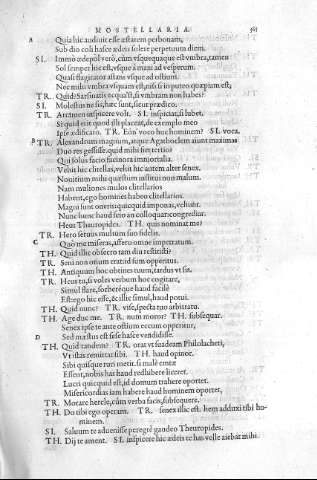 MOSTELLARIA. 561
A Quia hic audiuit esse æstatem perbonam,
Sub dio coli hasce ædeis solere perpetuum diem.
SI. Immò ædepol verò, cùm vsquequaque est vmbra, tamen
Sol semper hic est, vsque à mani ad vesperum.
Quasi flagitator astans vsque ad ostium.
Nec mihi vmbra vsquam est, nisi si in puteo quæpiam est,
TR. Quid: Sarsinatis ecqua est, si vmbram non habes?
SI. Molestus ne sis, hæc sunt, sicut prædico.
TR. Attamen inspicere volt. SI. inspiciat, si lubet,
Si quid erit quod illi placeat, de exemplo meo
Ipse ædificato. TR. Eòn' voco huc hominem? SI. voca.
B TR. Alexandrum magnum, atque Agathoclem aiunt maximas
Duo res gessisse, quid mihi fiet tertio
Qui solus facio facinora immortalia.
Vehit hic clitellas, vehit hic autem alter senex.
Nouitium mihi quæstum institui non malum.
Nam muliones mulos clitellarios
Habent, ego homines habeo clitellarios.
Magni sunt oneris, quicquid imponas, vehunt.
Nunc hunc haud scio an colloquar, congrediar.
Heus Theuropides. TH. quis nominat me?
TR. Hero seruus multum suo fidelis.
C Quò me miseras, affero omne impetratum.
TH. Quid illic obsecro tam diu restitisti?
TR. Seni non otium erat, id sum opperitus.
TH. Antiquum hoc obtines tuum, tardus vt sis.
TR. Heus tu, si voles verbum hoc cogitare,
Simul flare, sorbereque haud facilè
Est: ego hic esse, & illic simul, haud potui.
TH. Quid nunc? TR. vise, specta tuo arbitratu.
TH. Age duc me. TR. num moror? TH. subsequar.
Senex ipse te ante ostium eccum opperitur,
D Sed mæstus est se se hasce vendidisse.
TH. Quid tandem? TR. orat vt suadeam Philolacheti,
Vt istas remittat sibi. TH. haud opinor.
Sibi quisque ruri metit. si malè emtæ
Essent, nobis has haud redhibere liceret.
Lucri quicquid est, id domum trahere oportet.
Misericordias iam habere haud hominem oportet,
TR. Morare hercle, cùm verba facis, subsequere.
TH. Do tibi ego operam. TR. senex illic est. hem adduxi tibi ho-
minem.
SI. Saluum te aduenisse peregrè gaudeo Theuropides.
TH. Dij te ament. SI. inspicere hic ædeis te has velle aiebat mihi.